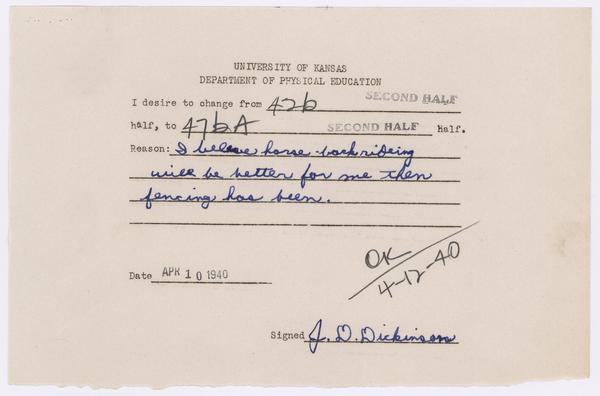 UNIVERSITY OF KANSAS
DEPARTMENT OF PHYSICAL EDUCATION
I desire to change from 42b SECOND HALF
half, to 47bA SECOND HALF Half.
Reason: I believe horse-back riding
will be better for me then
fencing has been.
OK
4-12-40
Date APR 10 1940
Signed J. D. Dickinson